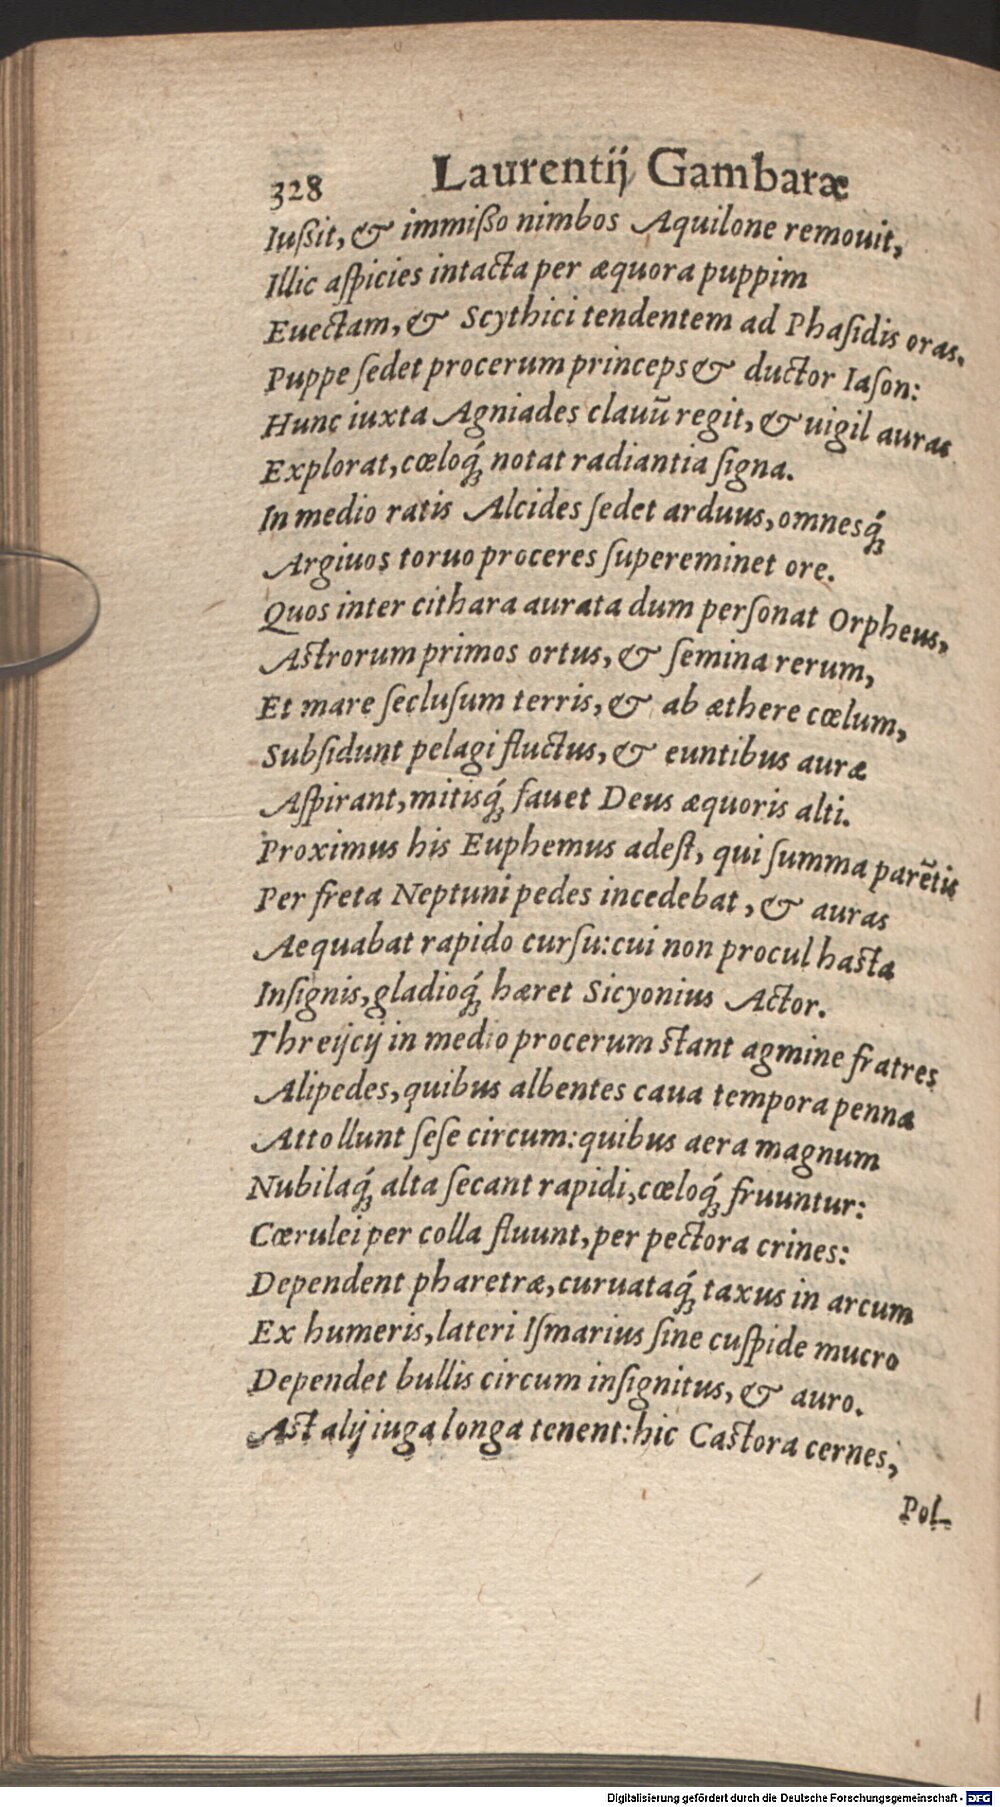 328 Laurentij Gambaræ
Iußit, & immißo nimbos Aquilone remouit,
Illic aſpicies intacta per æquora puppim
Euectam, & Scythici tendentem ad Phaſidis oras.
Puppe ſedet procerum princeps & ductor Iaſon:
Hunc iuxta Agniades clauū regit, & uigil auras
Explorat, cœloq́; notat radiantia ſigna.
In medio ratis Alcides ſedet arduus, omnesq́;
Argiuos toruo proceres ſupereminet ore.
Quos inter cithara aurata dum perſonat Orpheus,
Astrorum primos ortus, & ſemina rerum,
Et mare ſecluſum terris, & ab æthere cœlum,
Subſidunt pelagi fluctus, & euntibus auræ
Aſpirant, mitisq́; fauet Deus æquoris alti.
Proximus his Euphemus adeſt, qui ſumma parētis
Per freta Neptuni pedes incedebat, & auras
Aequabat rapido curſu: cui non procul hasta
Inſignis, gladioq́; hæret Sicyonius Actor.
Threijcij in medio procerum stant agmine fratres
Alipedes, quibus albentes caua tempora penna
Attollunt ſeſe circum: quibus aera magnum
Nubilaq́; alta ſecant rapidi, cœloq́; fruuntur:
Cœrulei per colla fluunt, per pectora crines:
Dependent pharetræ, curuataq́; taxus in arcum
Ex humeris, lateri Iſmarius ſine cuſpide mucro
Dependet bullis circum inſignitus, & auro.
Ast alij iuga longa tenent: hic Castora cernes,
Pol-
Digitalisierung gefördert durch die Deutsche Forschungsgemeinschaft - DFG